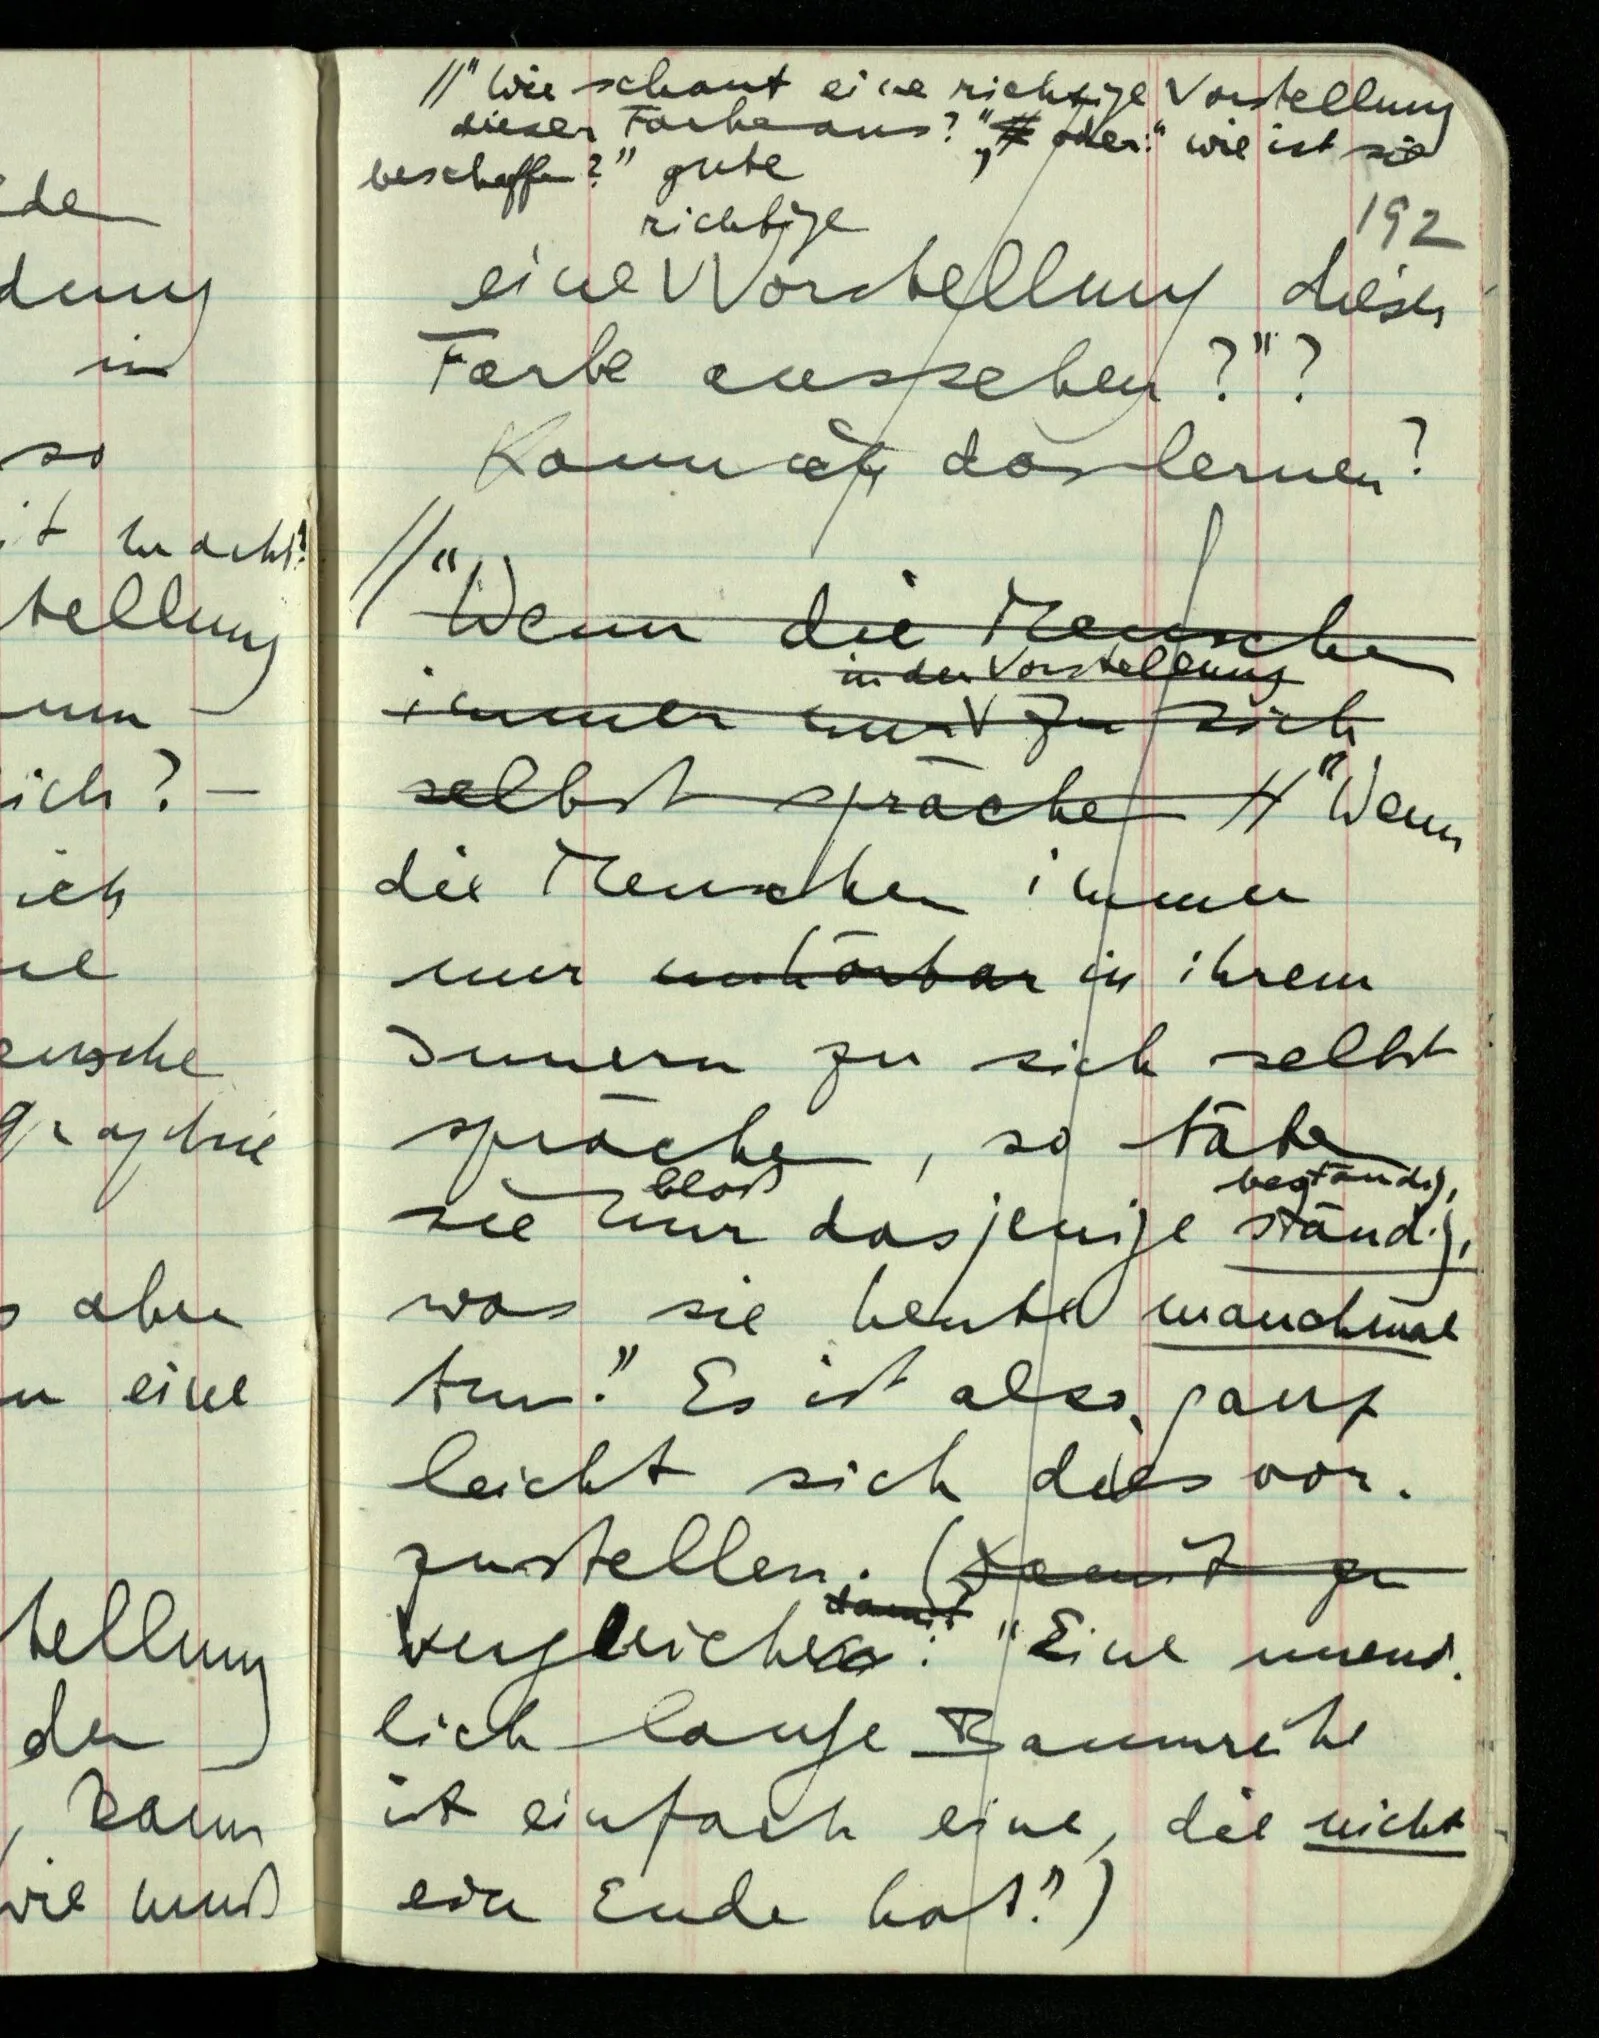 de
dung
in
so
it macht?
tellung
um
ich? —
ich
ne
ensche
graphie
s aber
n eine
tellung
der
, kann
wie muß
//"Wie schaut eine richtige Vorstellung
dieser Farbe aus?" „# oder: "wie ist sie
beschaffen?" gute
richtige
192
eine V Vorstellung dieser
Farbe aussehen?"?
Kann ich das lernen?
//"Wenn die Menschen
in der Vorstellung
immer nur V zu sich
selbst sprächen // "Wenn
die Menschen immer
nur unhörbar in ihrem
Innern zu sich selbst
sprächen, so täten
bloß beständig,
sie nur dasjenige ständig,
was sie heute manchmal
tun." Es ist also ganz
leicht sich dies vor-
zustellen. (Damit zu
damit
vergleiche: "Eine unend-
lich lange Baumreihe
ist einfach eine, die nicht
ein Ende hat?)